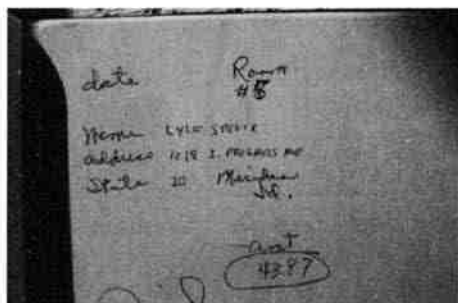 date Room
#5
Name LYLE STEVIK
address 1019 S. PROGRESS AVE
State ID Meridian
Id.
amt
43.87